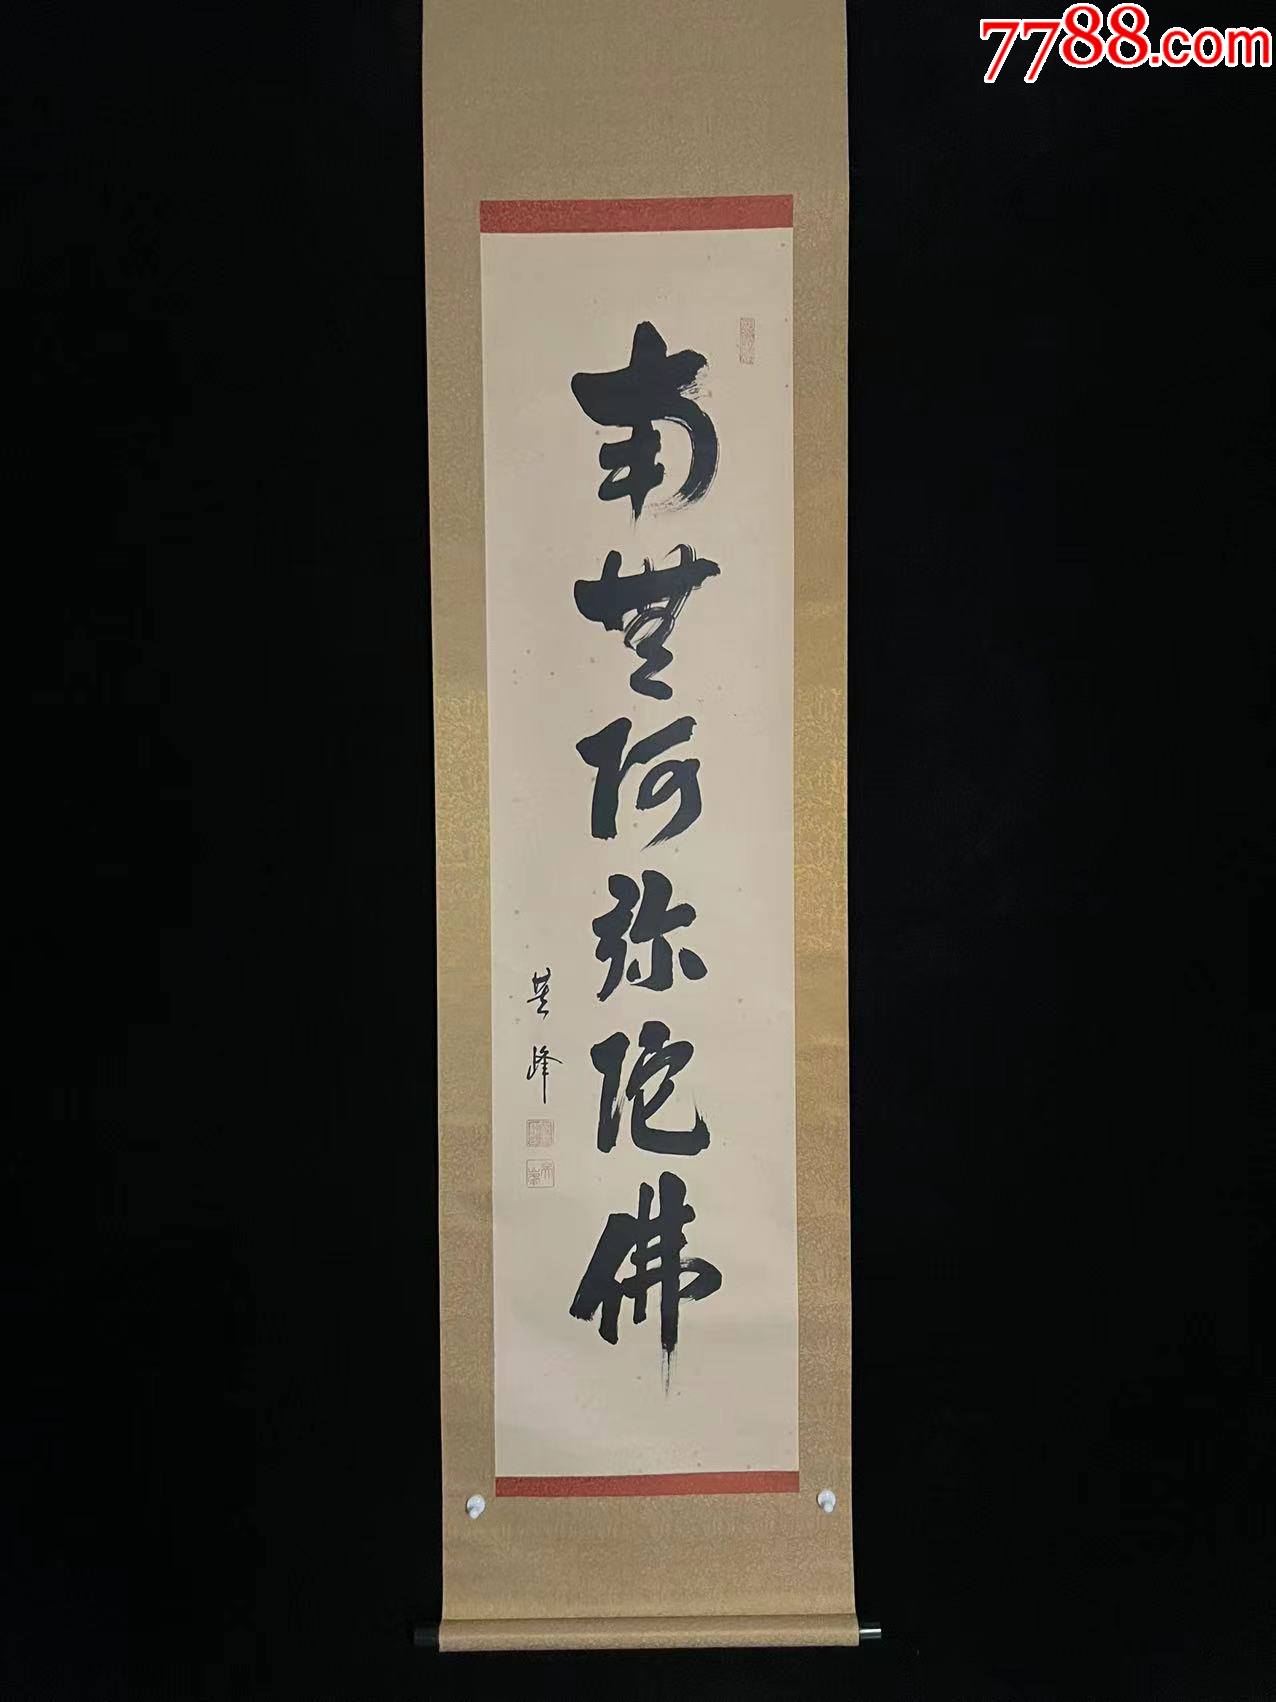 7788.com
南無阿弥陀佛